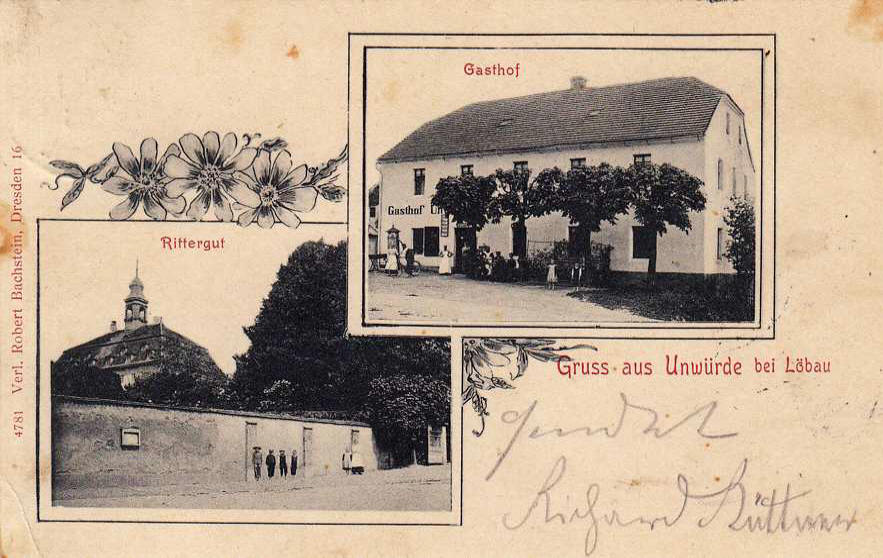 Gasthof
Gasthof
Rittergut
4781 Verl. Robert Bachstein, Dresden 16
Gruss aus Unwürde bei Löbau
sendet
Richard Büttner